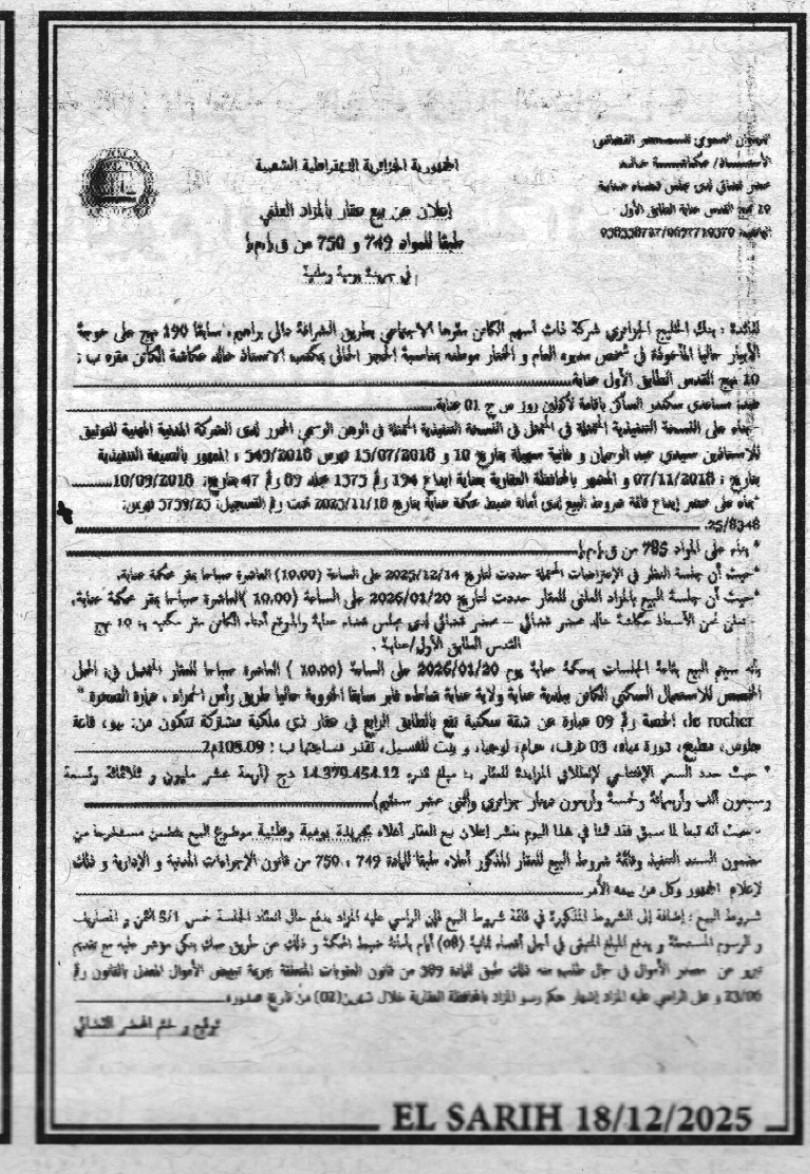 الديوان العمومي للمحضر القضائي
الأستاذ/ عكاشة خالد
محضر قضائي لدى مجلس قضاء عنابة
10 نهج القدس عنابة الطابق الأول
الجمهورية الجزائرية الديمقراطية الشعبية
إعلان عن بيع عقار بالمزاد العلني
طبقا للمواد 749 و 750 من ق.إ.م.إ
في جريدة يومية وطنية
لفائدة : بنك الخليج الجزائري شركة ذات أسهم الكائن مقرها الاجتماعي بطريق الشراقة دالي براهيم، سابقا 190 نهج علي خوجة
الأبيار حاليا المأخوذة في شخص مديره العام و المختار موطنه بمناسبة الحجز الحالي بمكتب الاستاذ خالد عكاشة الكائن مقره ب :
10 نهج القدس الطابق الأول عنابة
ضد: مساعدي سكندر الساكن بإقامة لأكولين روز س ج 01 عنابة
- بناء على النسخة التنفيذية المتمثلة في الرهن الرسمي المحرر لدى الشركة المدنية المهنية للتوثيق
للاستاذين سيدي عبد الرحمان و سهيلة بتاريخ 10 و 15/07/2018 فهرس 549/2018 ، الممهور بالصيغة التنفيذية
بتاريخ : 07/11/2018 و المشهر بالمحافظة العقارية بعنابة ايداع 194 رقم 1375 مجلد 89 رقم 47 بتاريخ: 10/09/2018
*بناء على محضر إيداع قائمة شروط البيع لدى أمانة ضبط محكمة عنابة بتاريخ 2025/11/18 تحت رقم التسجيل: 5759/25 فهرس:
25/8348.
* بناء على المواد 785 من ق.إ.م.إ
*حيث أن جلسة النظر في الإعتراضات المحتملة حددت لتاريخ 2025/12/14 على الساعة (10.00) العاشرة صباحا بمقر محكمة عنابة.
*حيث أن جلسة البيع بالمزاد العلني للعقار حددت لتاريخ 2026/01/20 على الساعة (10.00 )العاشرة صباحا بمقر محكمة عنابة.
- نعلن نحن الأستاذ عكاشة خالد محضر قضائي – محضر قضائي لدى مجلس قضاء عنابة والموقع أدناه الكائن مقر مكتبه بـ 10 نهج
القدس الطابق الأول/عنابة .
بأنه سيتم البيع بقاعة الجلسات بمحكمة عنابة يوم 2026/01/20 على الساعة (10.00 ) العاشرة صباحا للعقار المتمثل في: المحل
المخصص للاستعمال السكني الكائن ببلدية عنابة ولاية عنابة شاطئ سابقا الخروبة حاليا طريق رأس الحمراء ، عمارة الصخرة "
le rocher، الحصة رقم 09 عبارة عن شقة سكنية تقع بالطابق الرابع في عقار ذي ملكية مشتركة تتكون من: بهو، قاعة
جلوس، مطبخ، دورة مياه، 03 غرف، حمام، لوجيا، و بيت للغسيل، تقدر مساحتها ب : 105.09م2
* حيث حدد السعر الإفتتاحي لإنطلاق المزايدة للعقار بـ: مبلغ قدره 14.379.454.12 دج (أربعة عشر مليون و ثلاثمائة وتسعة
وسبعون ألف وأربعمائة وأربعون دينار جزائري وإثني عشر سنتيم)
- حيث أنه تبعا لما سبق فقد قمنا في هذا اليوم بنشر إعلان بيع العقار أعلاه بجريدة يومية وطنية موضوع البيع يتضمن مستخرجا من
مضمون السند التنفيذي وقائمة شروط البيع للعقار المذكور أعلاه طبقا للمادة 749 ، 750 من قانون الإجراءات المدنية و الإدارية و ذلك
لإعلام الجمهور وكل من يهمه الأمر
شروط البيع : إضافة إلى الشروط المذكورة في قائمة شروط البيع فإن الراسي عليه المزاد يدفع حال انعقاد الجلسة خمس 5/1 الثمن و المصاريف
و الرسوم المستحقة و يدفع المبلغ المتبقي في أجل أقصاه ثمانية (08) أيام بأمانة ضبط المحكمة و ذلك عن طريق صك بنكي مؤشر عليه مع تقديم
تبرير عن مصدر الأموال في حال طلب منه ذلك طبق للمادة 389 من قانون العقوبات المتعلقة بجريمة تبييض الأموال المعدل بالقانون رقم
23/06 و على الراسي عليه المزاد إشهار حكم رسو المزاد بالمحافظة العقارية خلال شهرين(02) من تاريخ صدوره
توقيع و ختم المحضر القضائي
EL SARIH 18/12/2025